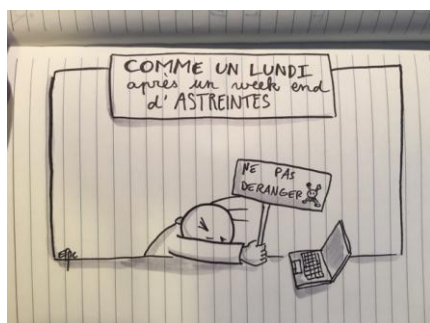 COMME UN LUNDI
après un week end
d'ASTREINTES
NE PAS
DERANGER